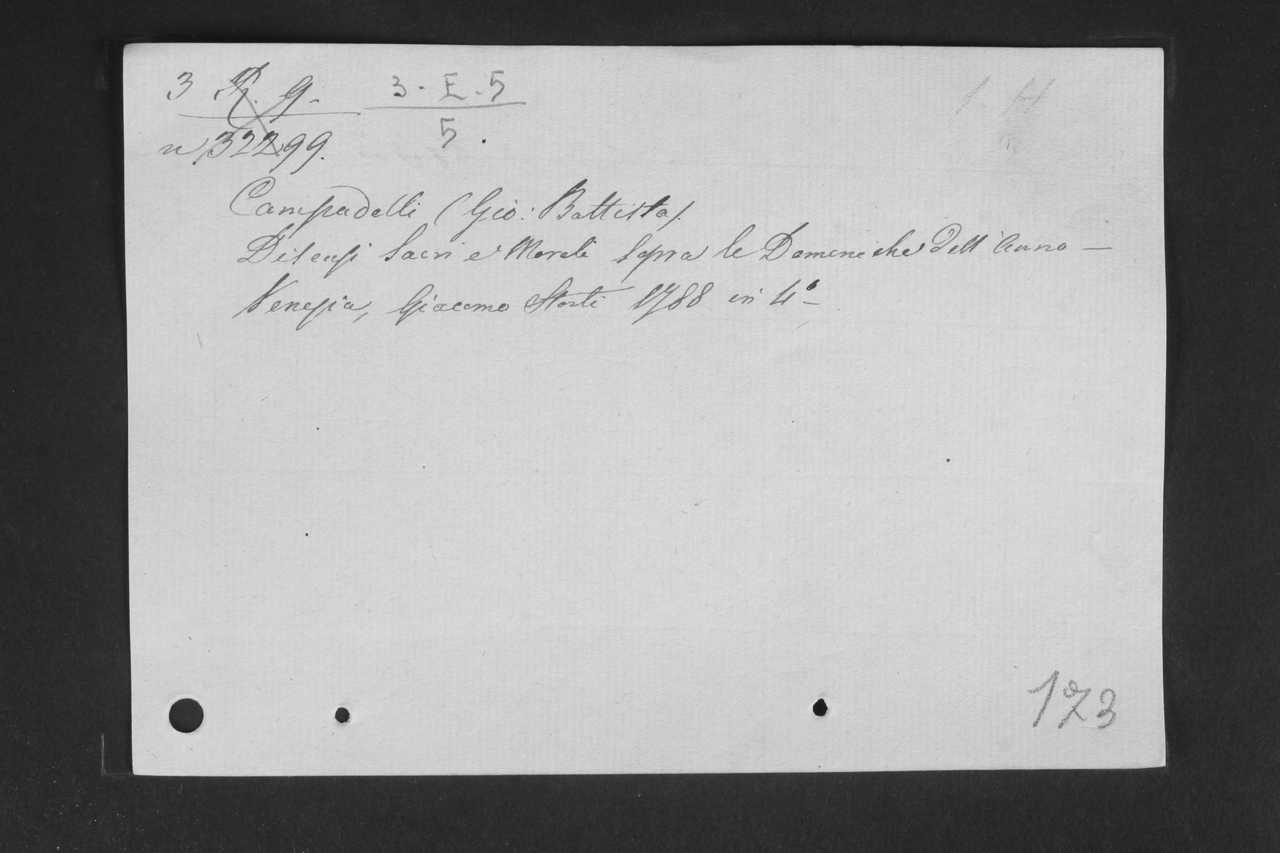 3 R. 9. 3 - E - 5
n 32299. 5.
1. H
Campadelli (Gio: Battista)
Discorsi Sacri e Morali Sopra le Domeniche dell'Anno —
Venezia, Giacomo Storti 1788 in 4° —
173